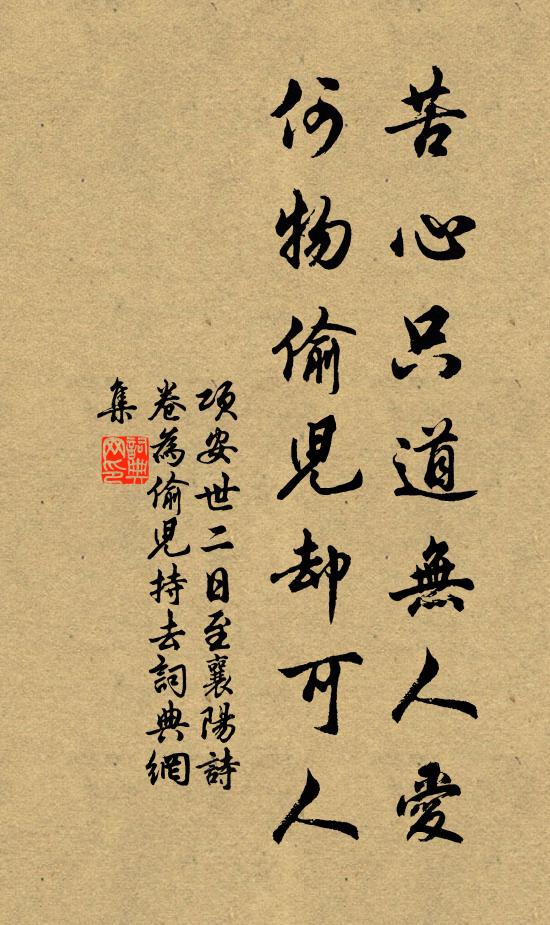 苦心只道無人愛
何物偷兒却可人
項安世二日至襄陽詩
卷為偷兒持去詞典網
集
詞典網印